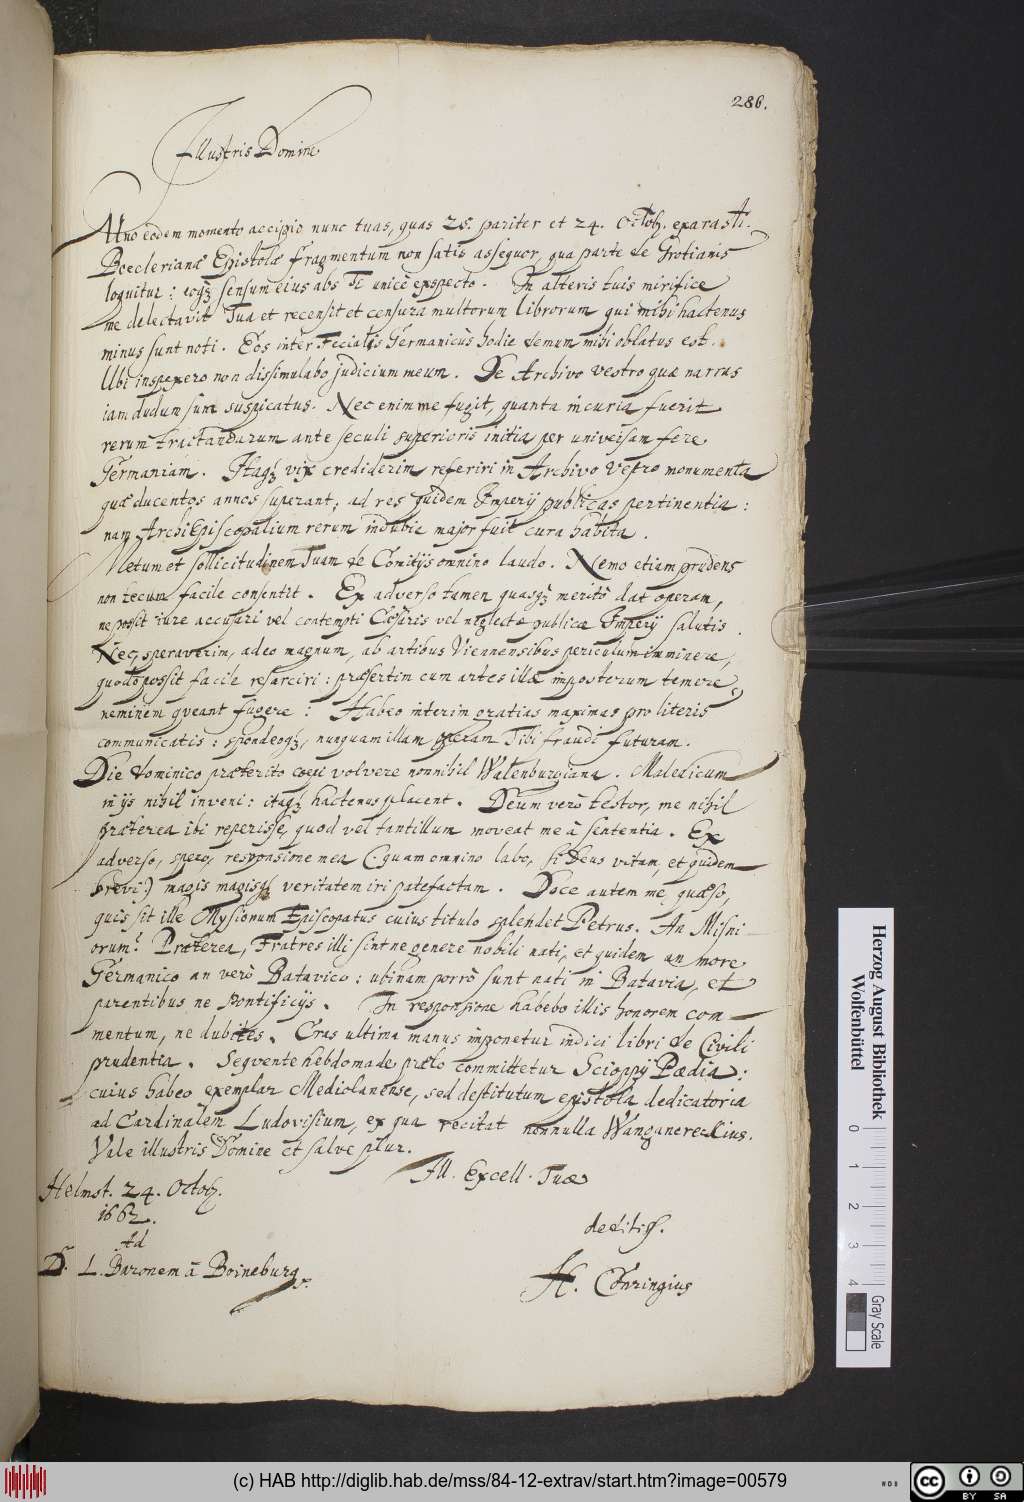 286.
Illustris Domine
Uno eodem momento accipio nunc tuas, quas 25. pariter et 24. Octob. exarasti.
Boeclerianæ Epistolæ fragmentum non satis assequor, qua parte de Grotianis
loquitur: eoq; sensum eius abs Te unicè exspecto. In alteris tuis mirifice
me delectavit Tua et recensit et censura multorum librorum qui mihi hactenus
minus sunt noti. Eos inter Fecialis Germanicus hodie demum mihi oblatus est.
Ubi inspexero non dissimulabo judicium meum. De Archivo vestro quæ narras
iam dudum sum suspicatus. Nec enim me fugit, quanta incuria fuerit
rerum tractandarum ante seculi superioris initia per universam fere
Germaniam. Itaq; vix crediderim referiri in Archivo vestro monumenta
quæ ducentos annos superant, ad res quidem Imperij publicas pertinentia:
nam ArchiEpiscopalium rerum indubie major fuit cura habita.
Metum et sollicitudinem Tuam de Comitijs omnino laudo. Nemo etiam prudens
non tecum facile consentit. Ex adverso tamen quasq; meritò dat operam,
ne possit iure accusari vel contempti Cæsaris vel neglectæ publicæ Imperij salutis.
Nec speraverim, adeo magnum, ab artibus Viennensibus periculum imminere,
quod possit facile resarciri: præsertim cum artes illæ impostorum temere
neminem qveant fugere: Habeo interim gratias maximas pro literis
communicatis: spondeoq;, nunquam illam operam Tibi fraudi futuram.
Die dominico præterito coepi volvere nonnihil Walenburgiana. Maledicum
in ijs nihil inveni: itaq; hactenus placent. Deum verò testor, me nihil
præterea ibi reperisse, quod vel tantillum moveat me â sententia. Ex
adverso, spero, responsione mea (: quam omnino labo, si Deus vitam, et quidem
brevi:) magis magisq; veritatem iri patefactam. Doce autem me, quæso,
quis sit ille Mysionum Episcopatus cuius titulo splendet Petrus. An Misni-
orum? Præterea, Fratres illi sintne genere nobili nati, et quidem an more
Germanico an verò Batavico: ubinam porrò sunt nati in Batavia, et
parentibus ne Pontificijs. In responsione habebo illis honorem com-
mentum, ne dubites. Cras ultima manus imponetur indici libri de Civili
prudentia. Seqvente hebdomade prælo committetur Scioppij Pædia:
cuius habeo exemplar Mediolanense, sed destitutum epistola dedicatoria
ad Cardinalem Ludovisium, ex qua recitat nonnulla Wangnereckius.
Vale illustris Domine et salve plur.
Ill. Excell. Tuæ
Helmst. 24. Octob.
1662.
deditiss.
Ad
D. L. Baronem â Boineburg.
H. Conringius
Herzog August Bibliothek
Wolfenbüttel
0 1 2 3 4
Gray Scale
(c) HAB http://diglib.hab.de/mss/84-12-extrav/start.htm?image=00579
WDB
cc BY SA